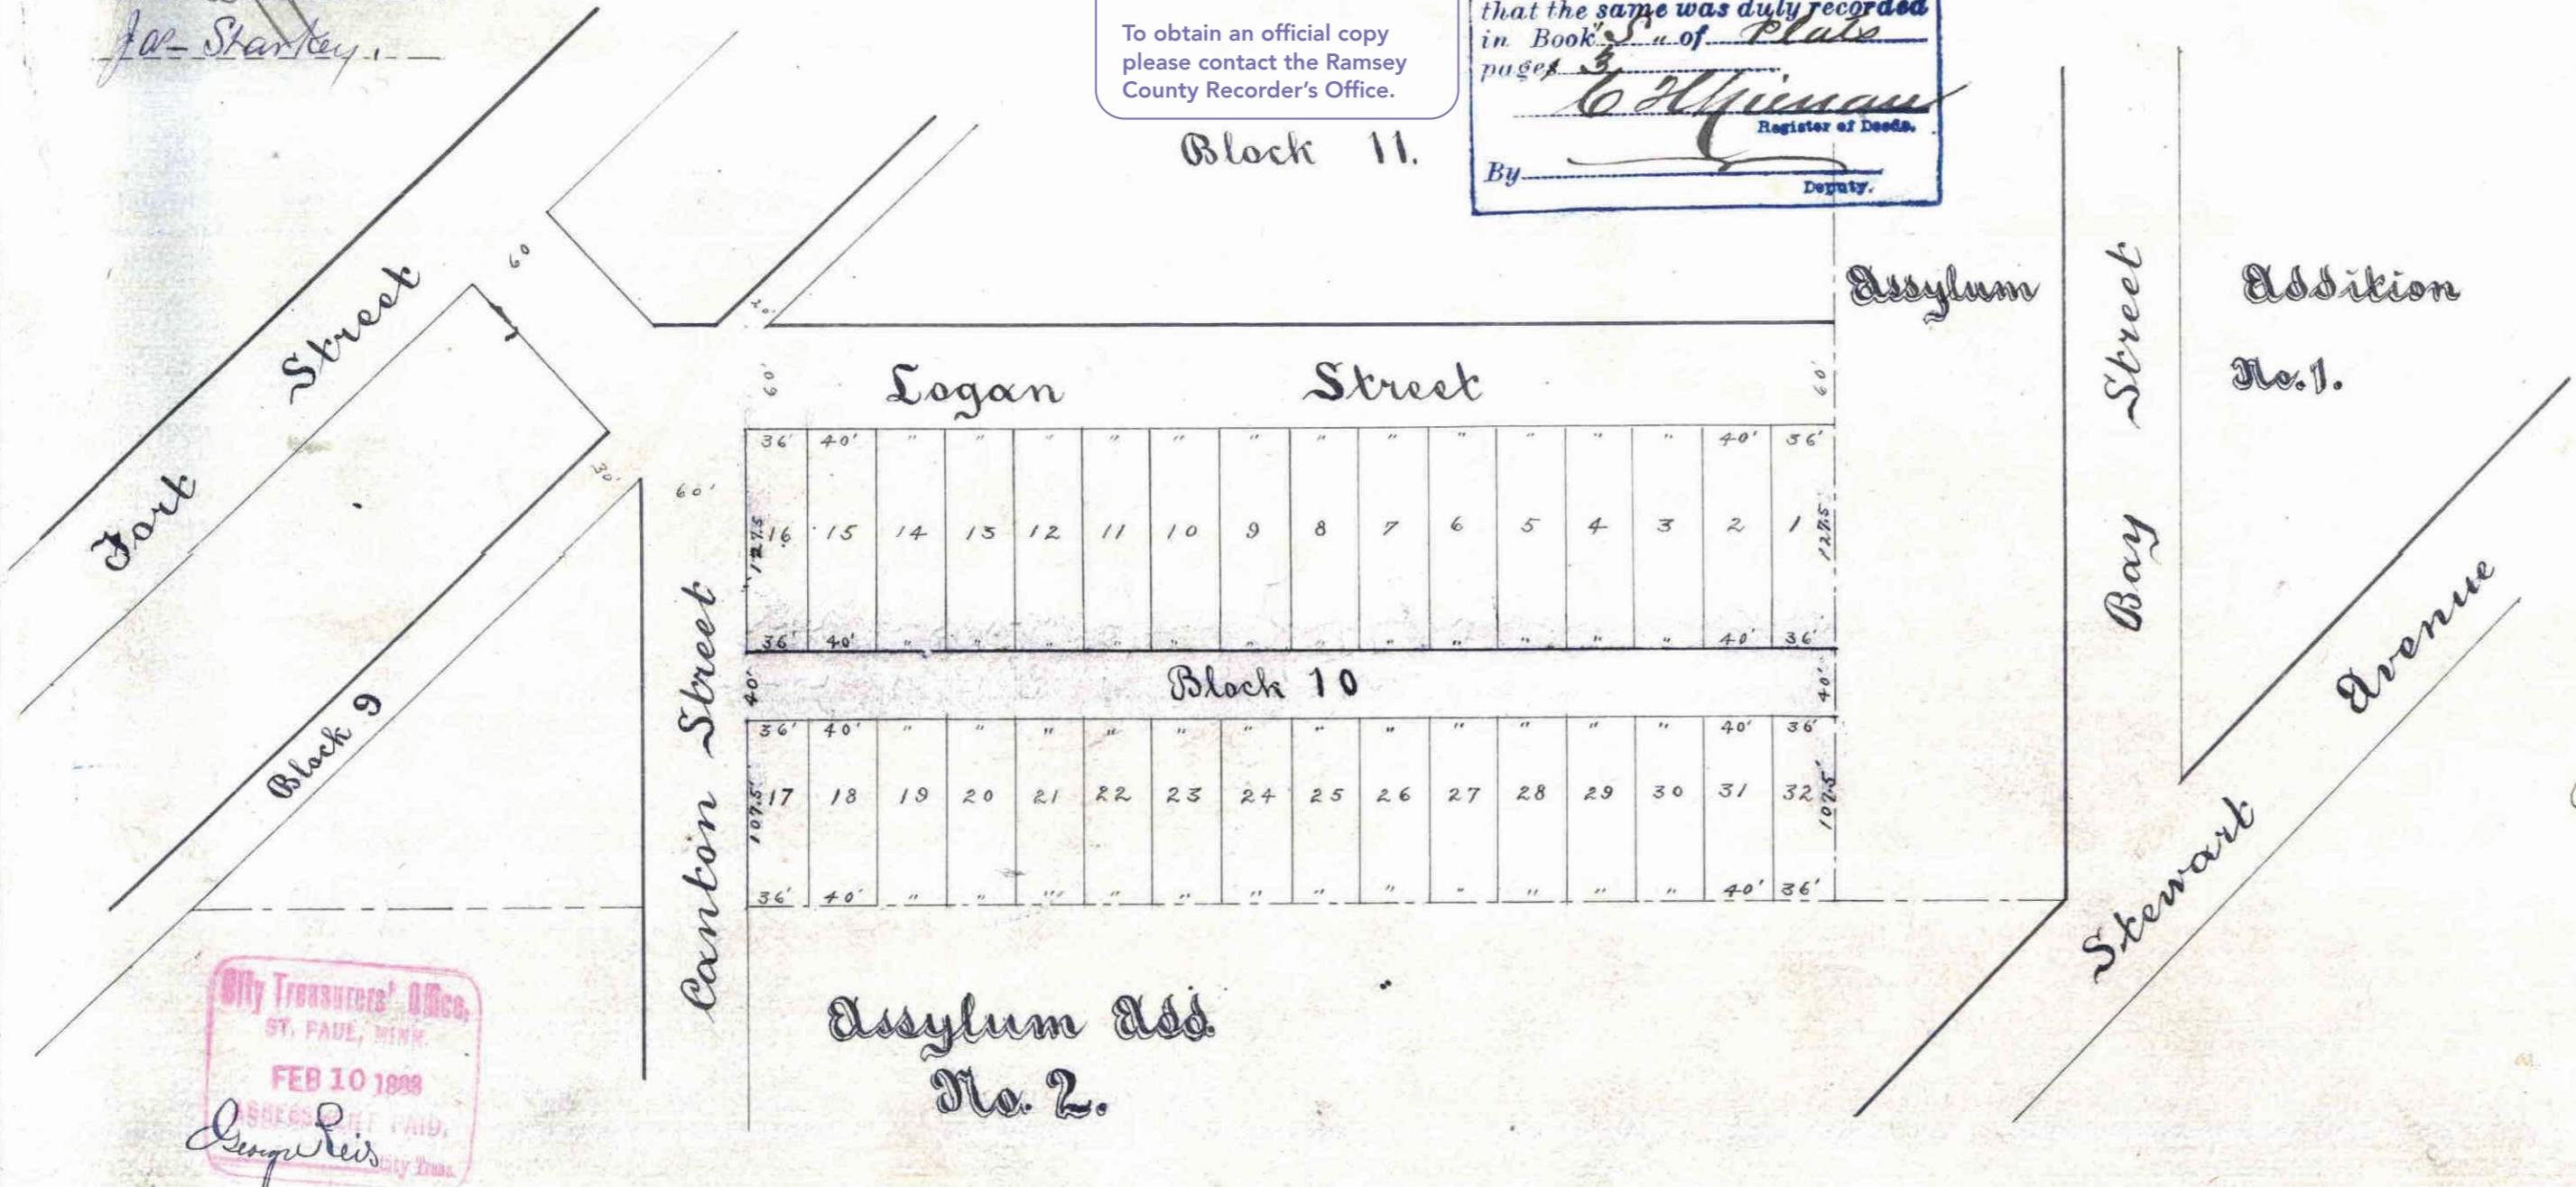 Jas Starkey.
To obtain an official copy
please contact the Ramsey
County Recorder's Office.
that the same was duly recorded
in Book "S" of Plats
pages 3
Register of Deeds.
By
Deputy.
Block 11.
Fort Street
60
20'
Assylum
Addition
No. 1.
Bay Street
Stewart Avenue
60' Logan Street 60'
30'
60'
36' 40' " " " " " " " " " " " " 40' 36'
127.5 16 15 14 13 12 11 10 9 8 7 6 5 4 3 2 1 127.5'
36' 40' " " " " " " " " " " " " 40' 36'
40' Block 10 40'
36' 40' " " " " " " " " " " " " 40' 36'
107.5' 17 18 19 20 21 22 23 24 25 26 27 28 29 30 31 32 107.5'
36' 40' " " " " " " " " " " " " 40' 36'
Canton Street
Block 9
Assylum Add.
No. 2.
City Treasurers' Office,
ST. PAUL, MINN.
FEB 10 1888
ASSESSMENT PAID,
George Reis
City Treas.